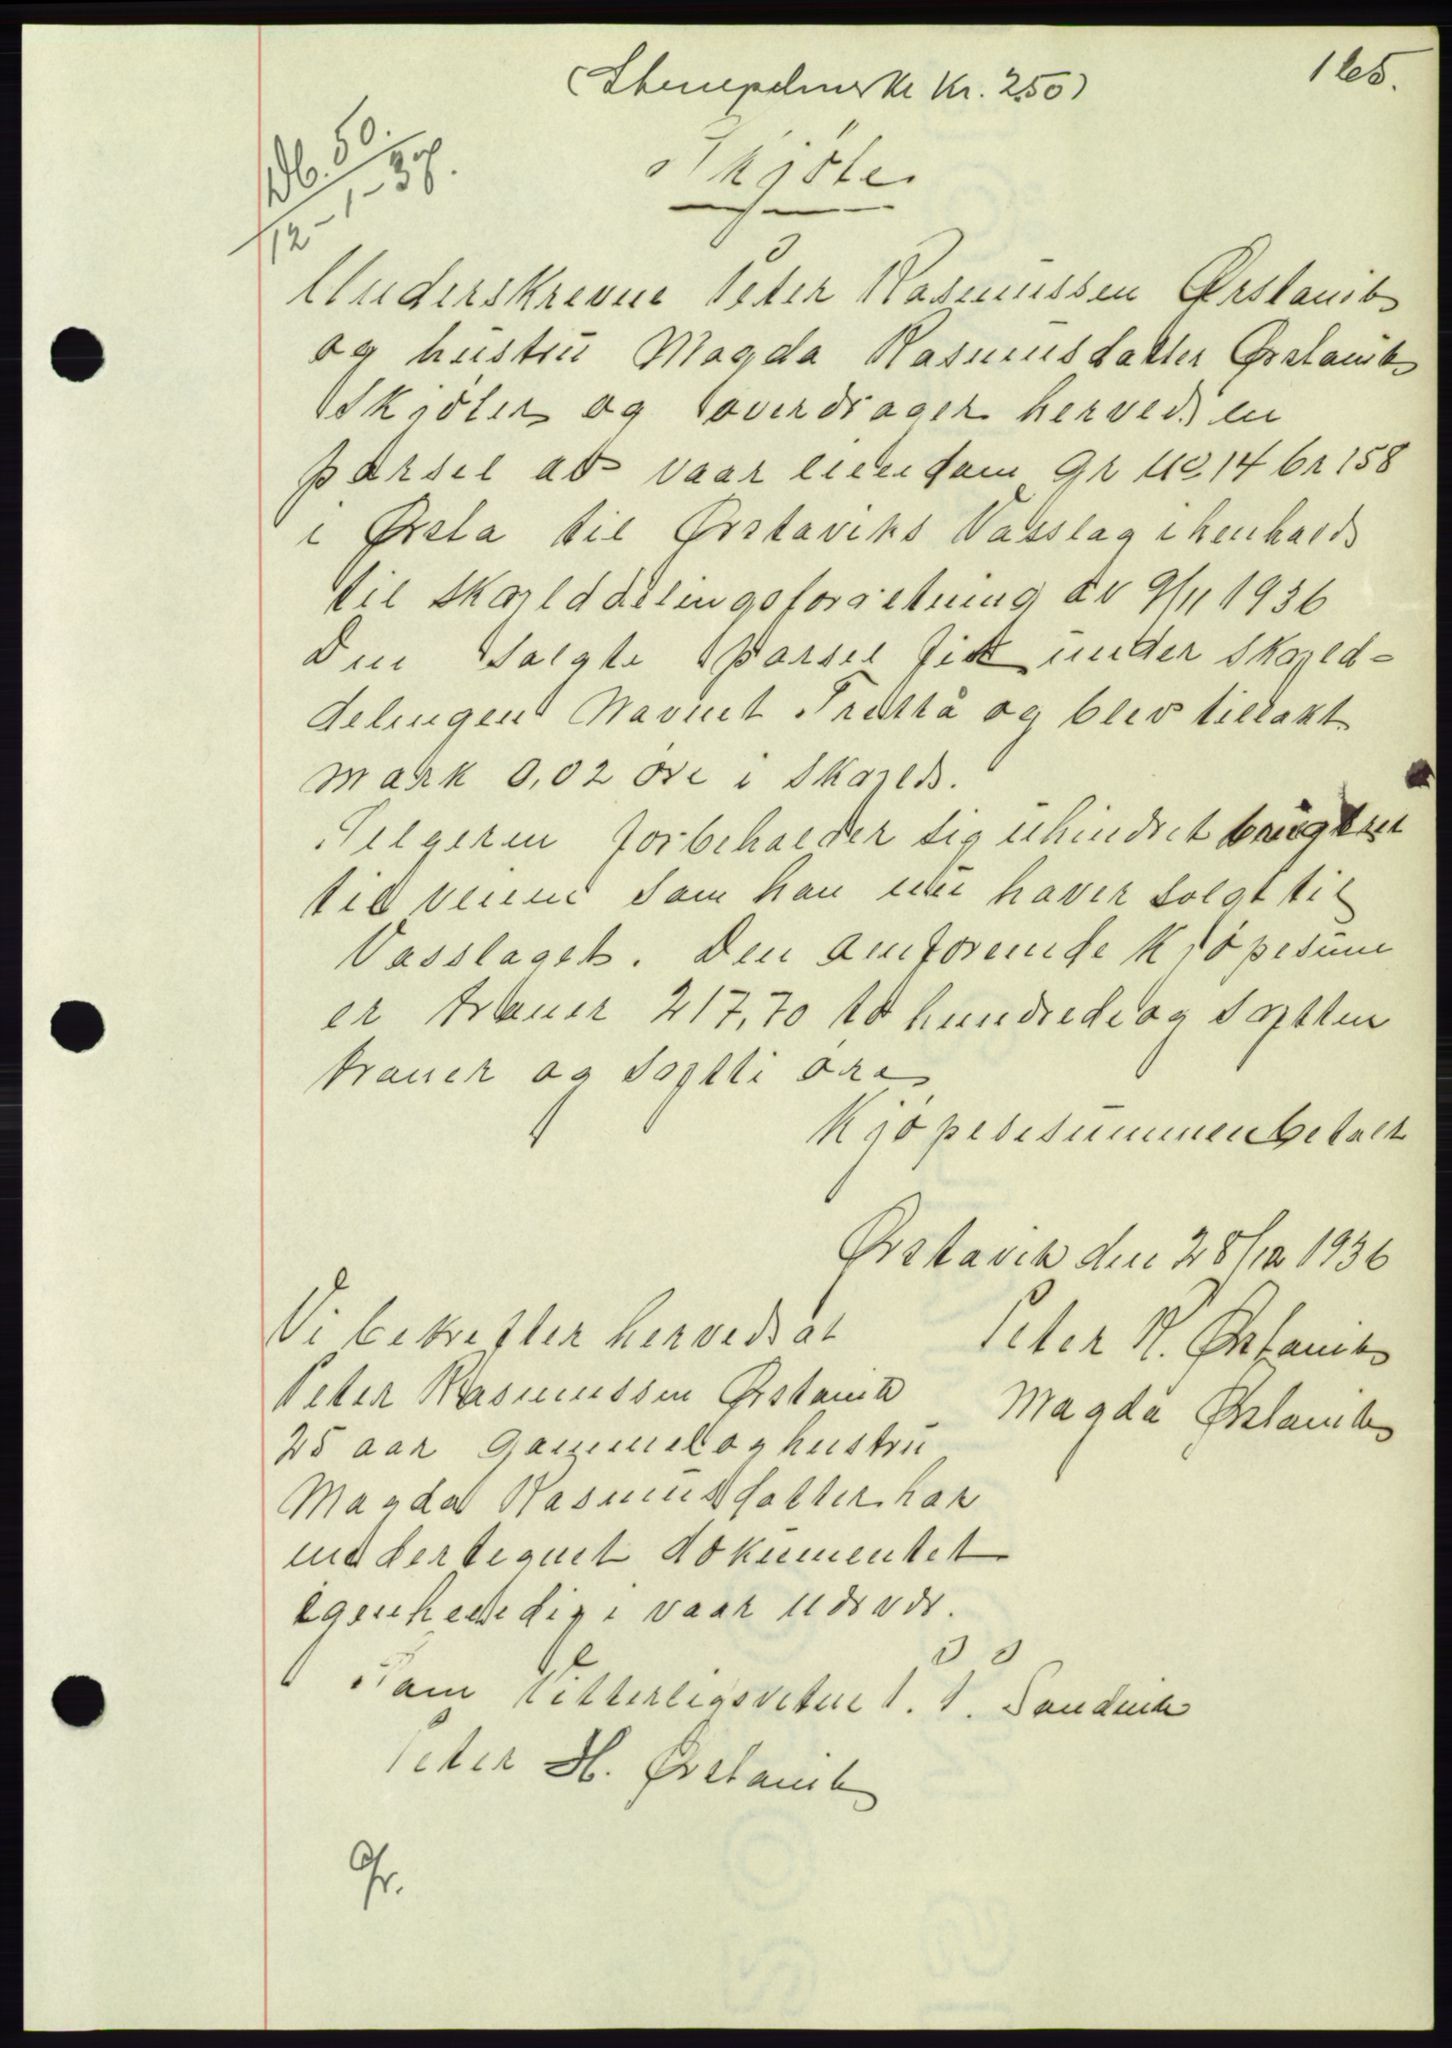 165.
(Stempelmerke Kr. 2.50)
Db. 50.
12-1-37.
Skjøte
Underskrevne Peter Rasmussen Ørstavik
og hustru Magda Rasmusdatter Ørstavik
Skjøter og overdrager herved en
parsel av vaar eiendom gr no 14 br 158
i Ørsta til Ørstaviks Vasslag i henhold
til skylddelingsforretning av 9/11 1936
Den solgte parsel fik under skyld-
delingen Navnet Trettå og blev tillakt
mark 0,02 øre i Skyld.
Selgeren forbeholder sig uhindret brugsret
til veien som han nu haver solgt til
Vasslaget. Den omforende Kjøpesum
er kroner 217,70 to hundrede og søtten
kroner og søtti øre
Kjøpesesummen betalt
Ørstavik den 28/12 1936
Peter R. Ørstavik
Magda Ørstavik
Vi bekrefter herved at
Peter Rasmussen Ørstavik
25 aar gammel og hustru
Magda Rasmusdatter har
undertegnet dokumentet
egenhendig i vaar nærvær.
Som Vitterligsvitne P. P. Sandvik
Peter H. Ørstavik
Gr.